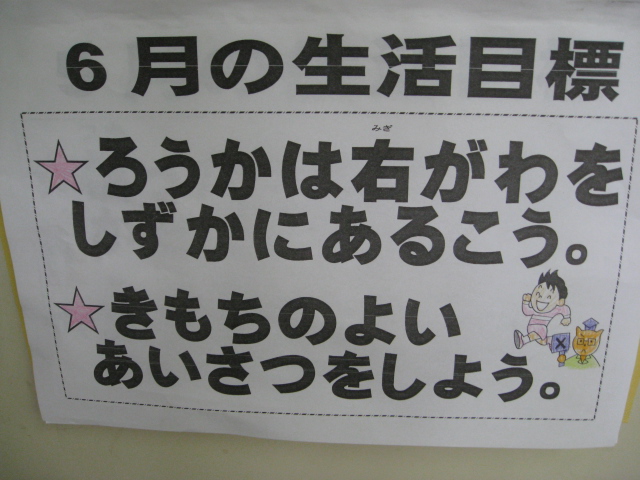 6月の生活目標
みぎ
★ろうかは右がわを
しずかにあるこう。
★きもちのよい
あいさつをしよう。